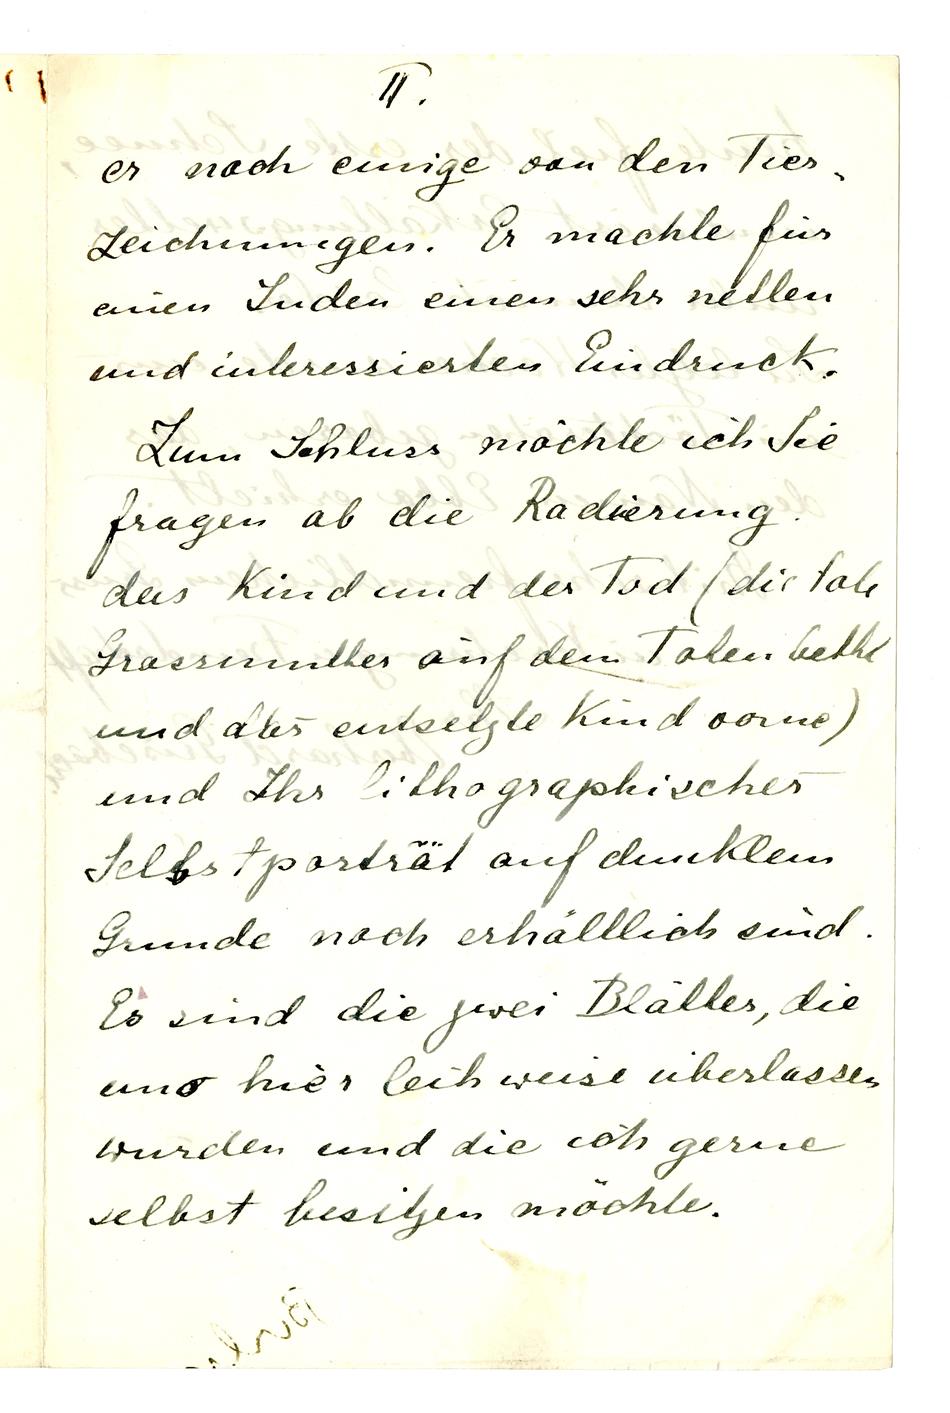 II.
er noch einige von den Tier-
zeichnungen. Er machte für
einen Juden einen sehr netten
und interessierten Eindruck.
Zum Schluss möchte ich Sie
fragen ob die Radierung.
das Kind und der Tod (die tote
Grossmutter auf dem Totenbette
und das entsetzte Kind vorne)
und Ihr lithographisches
Selbstporträt auf dunklem
Grunde noch erhältlich sind.
Es sind die zwei Blätter, die
uns hier leihweise überlassen
wurden und die ich gerne
selbst besitzen möchte.